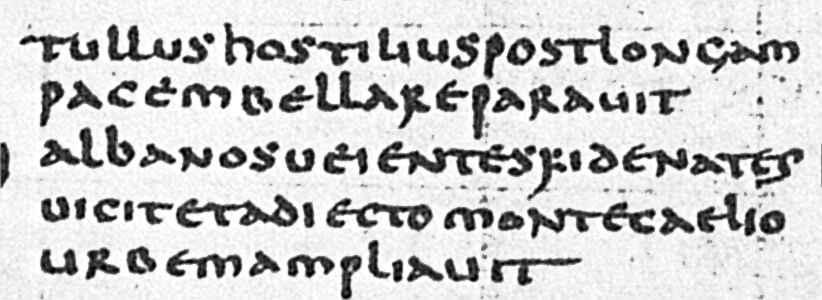 tullus hostilius post longam
pacem bella reparavit
albanos veientes fidenates
vicit et adiecto monte caelio
urbem ampliavit